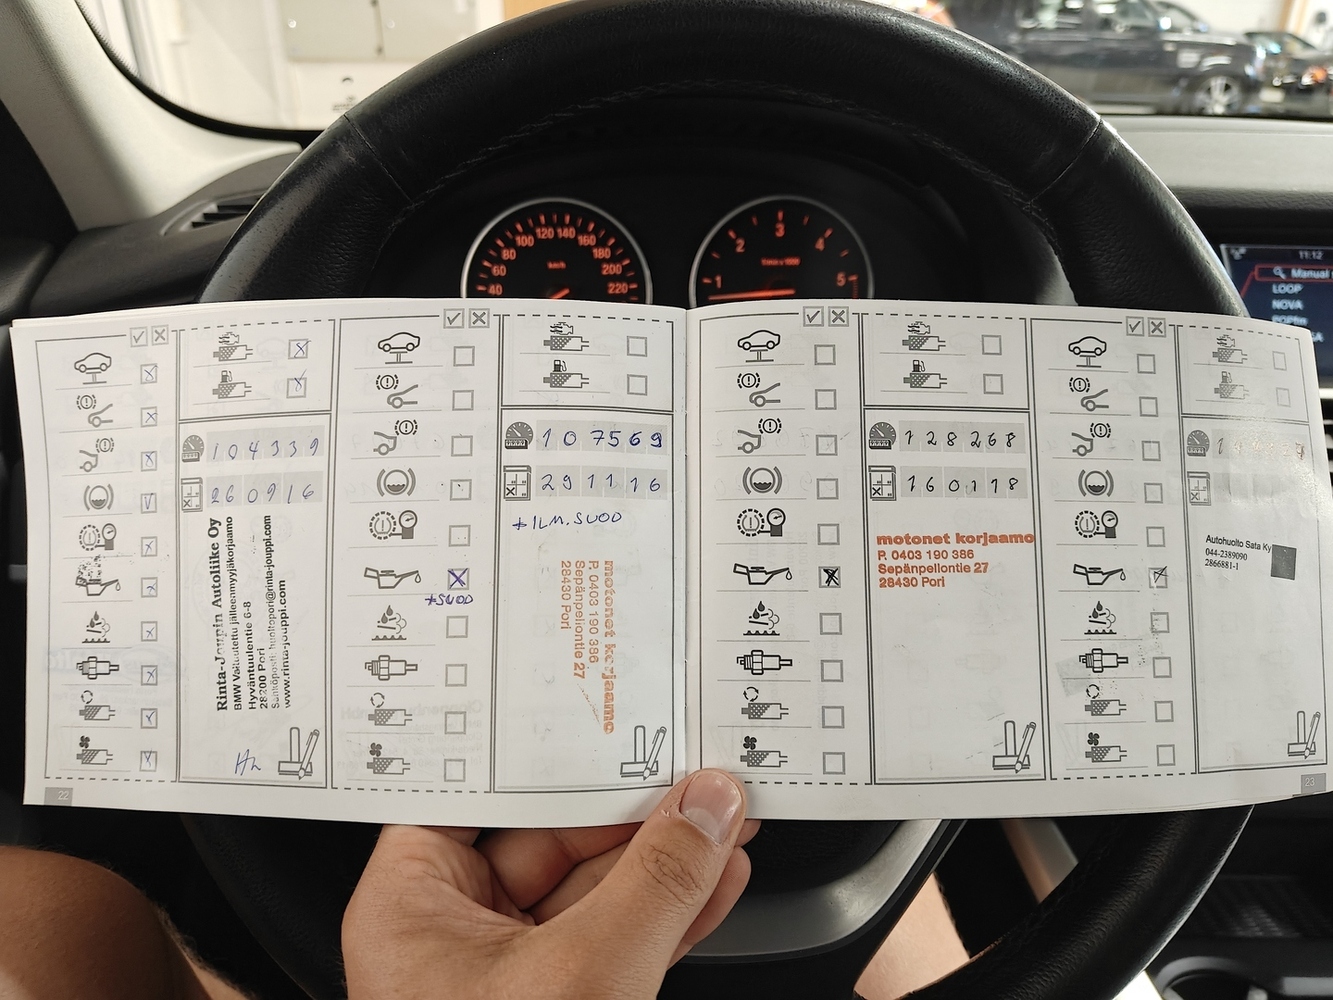 20
40
60
80
100
120
140
160
180
200
220
km/h
1
2
3
4
5
1/min x 1000
11:12
Manual
LOOP
NOVA
104339
260916
Rinta-Joupin Autoliike Oy
BMW Valtuutettu jälleenmyyjäkorjaamo
Hyväntuulentie 6-8
28200 Pori
Sähköposti: huoltopori@rinta-jouppi.com
www.rinta-jouppi.com
22
*SUOD
107569
291116
*ILM. SUOD
motonet korjaamo
P. 0403 190 386
Sepänpellontie 27
28430 Pori
128268
160118
motonet korjaamo
P. 0403 190 386
Sepänpellontie 27
28430 Pori
Autohuolto Sata Ky
044-2389090
2866881-1
23